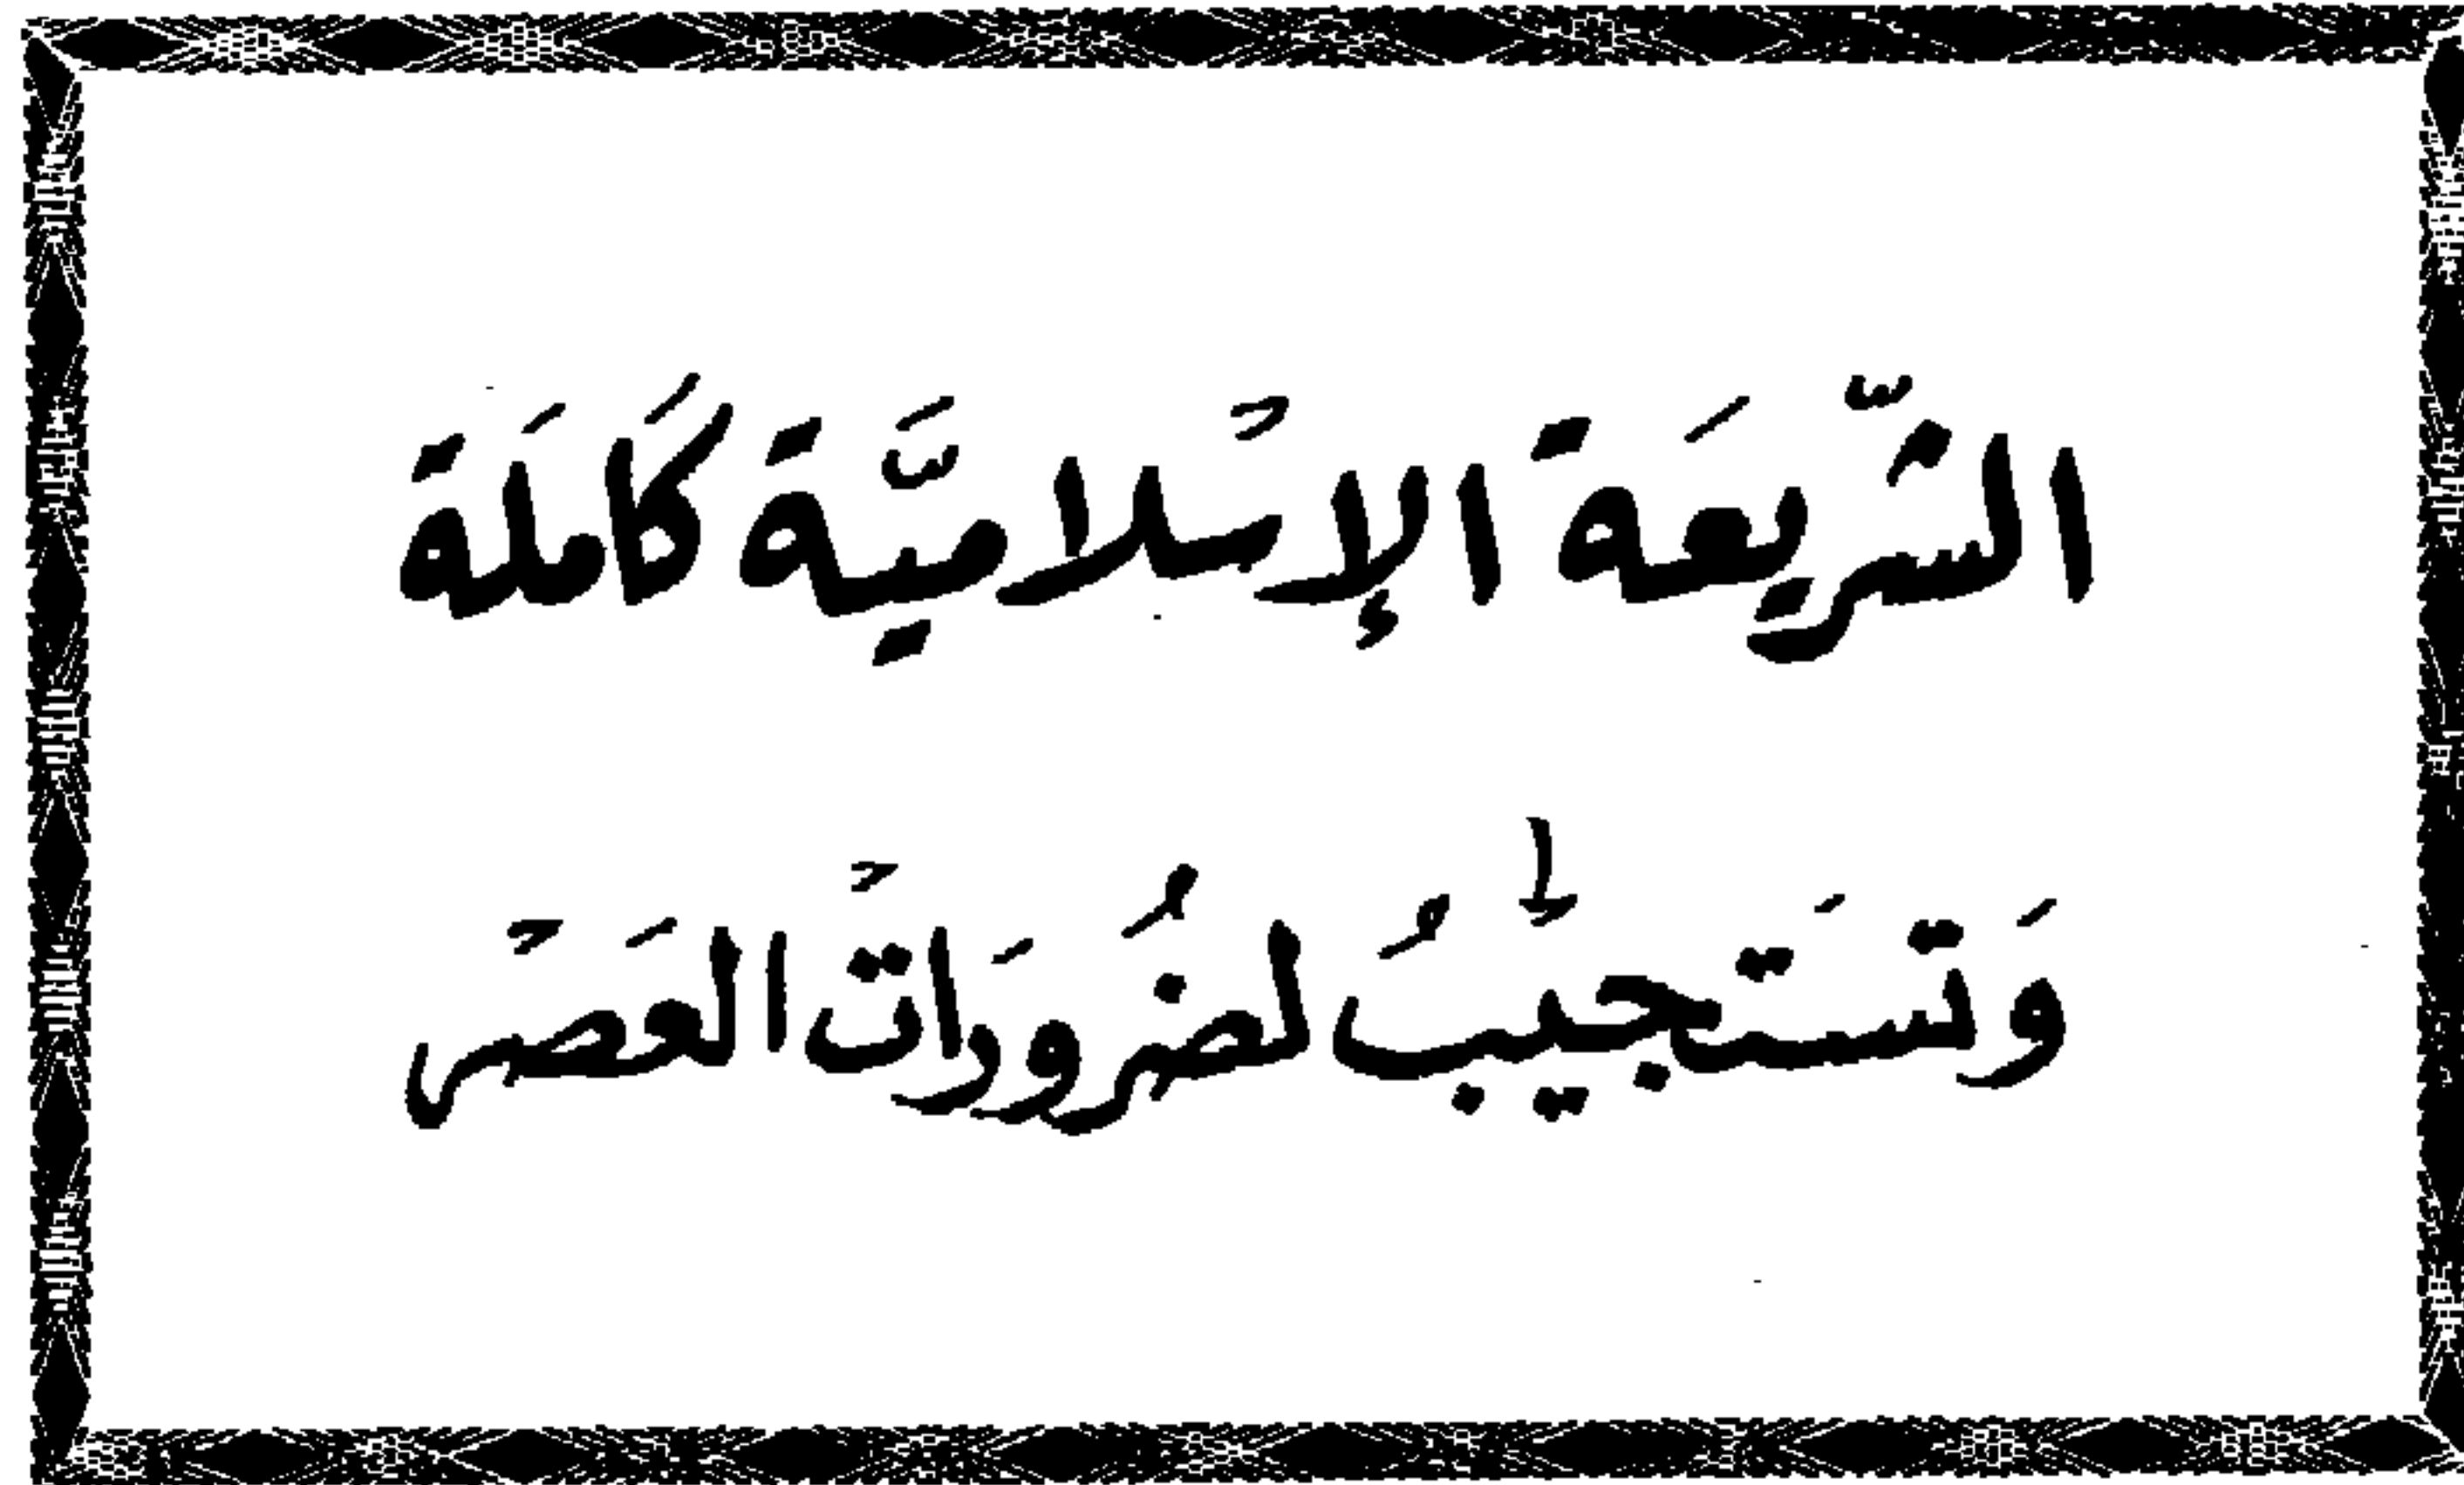 الشَّريعَة الإسْلاميَّة كَاملَة
وَتستَجيبُ لضرُورَاتْ العَصْر